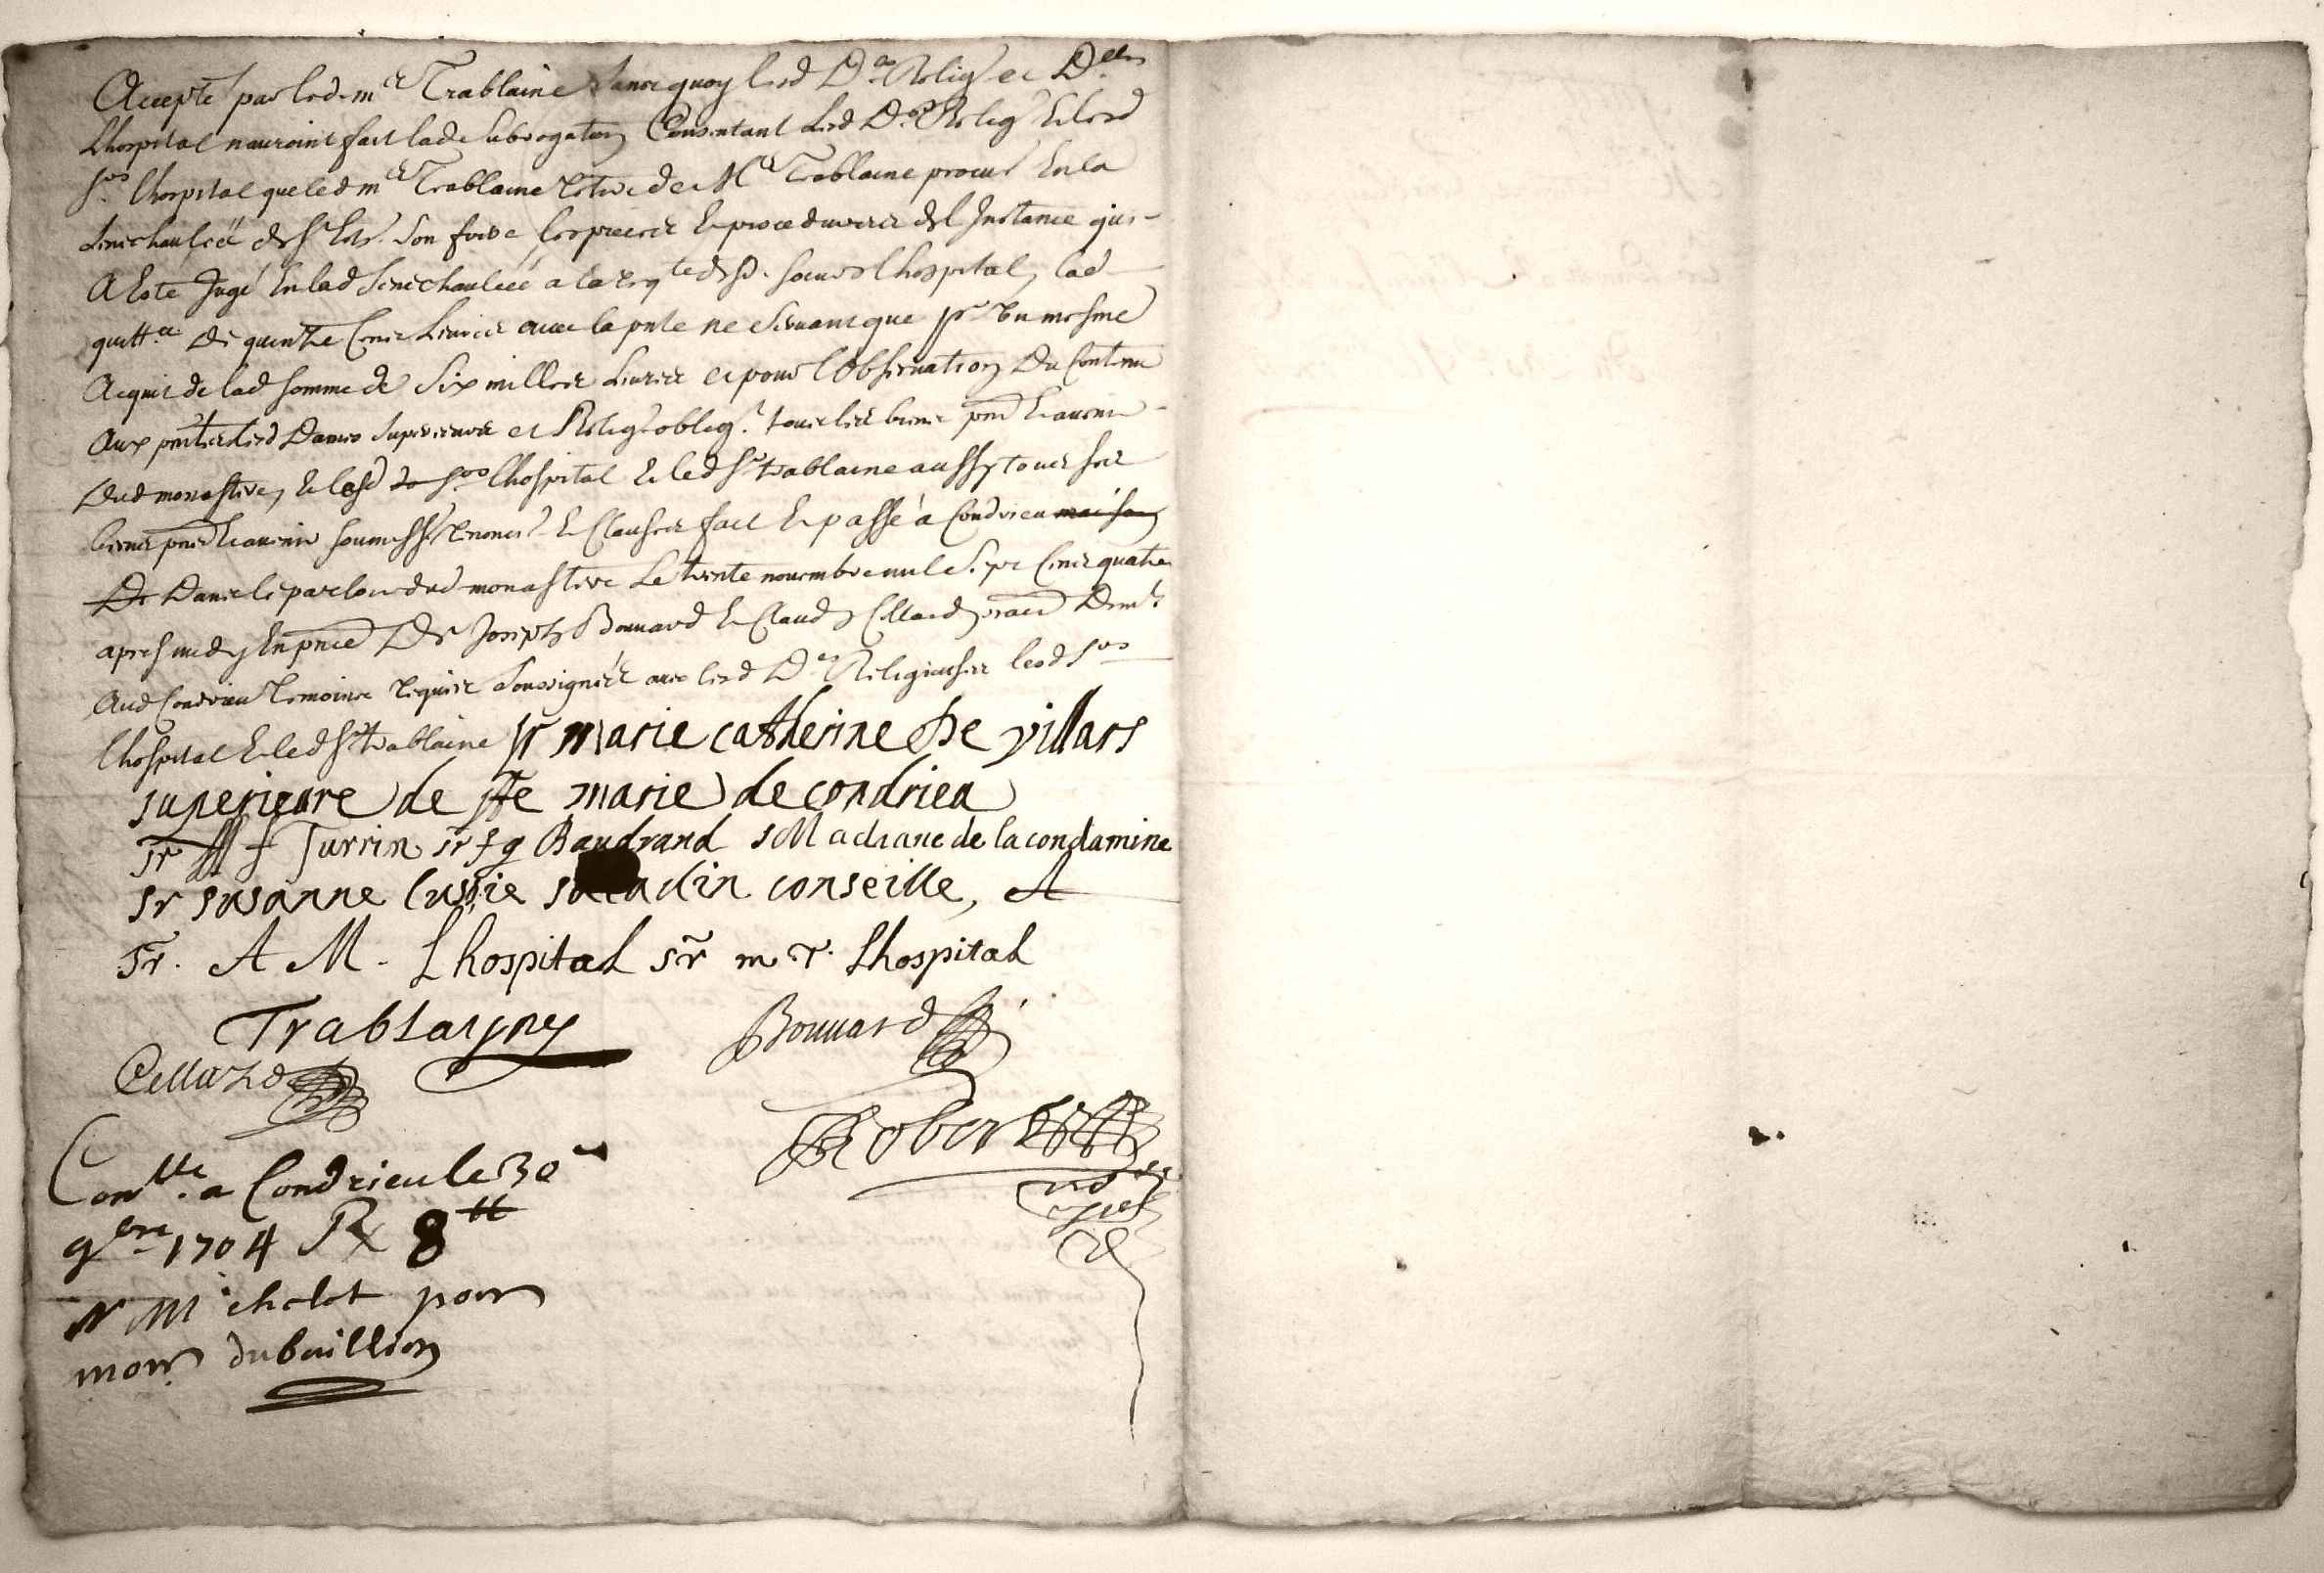 Accepté par led. mre Trablaine sans quoy lesd Des Relig et Dlles
Lhospital nauroint fait lade subrogaton Consentant Lesd Des Relig Et lesd
srs Lhospital que led mre Trablaine retire de Me Trablaine procur En la
senechaulcée de st Est. son fore les pieces Et procedures de l Instance qui
A Este Jugé En lad senechaulcée a la reqte desd. soeurs Lhospital, lad
quitt.ce De quinze Cens Livres avec la pnte ne servant que pr Un mesme
Acquit de lad somme de Six milles Livres et pour l'Observation Du Contenu
Aux pntes lesd Dames Superieure et Relig. oblig.t tous les biens pnt Et avenir
Dud monastere, Et lesd srs Lhospital Et led sr trablaine aussy tous ses
biens pnt Et avenir soumiss. renonc. Et Clauses fait Et passé a Condrieu maison
De Dans le parloir dud monastere Le trente novembre mil Sept Cens quatre
apres midy En pnce De Sr Joseph Bonnard Et Claude Cellard prat Demt
Aud Condrieu temoins requis Soussignés avec lesd Des Religieuses lesd srs
Lhospital Et led sr trablaine sr marie catherine De villars
superieure de ste marie de condrieu
sr M f Turrin sr f g Baudrand s M adriane de la condamine
sr susanne lussie saladin conseille, A
sr. A M. Lhospital sr m T. Lhospital
Trablayne
Bonnard
Cellard
Robert
Conlle. a Condrieu le 30e
9bre 1704 Rx 8 ₶
N Michelot pour
monr dubuillion